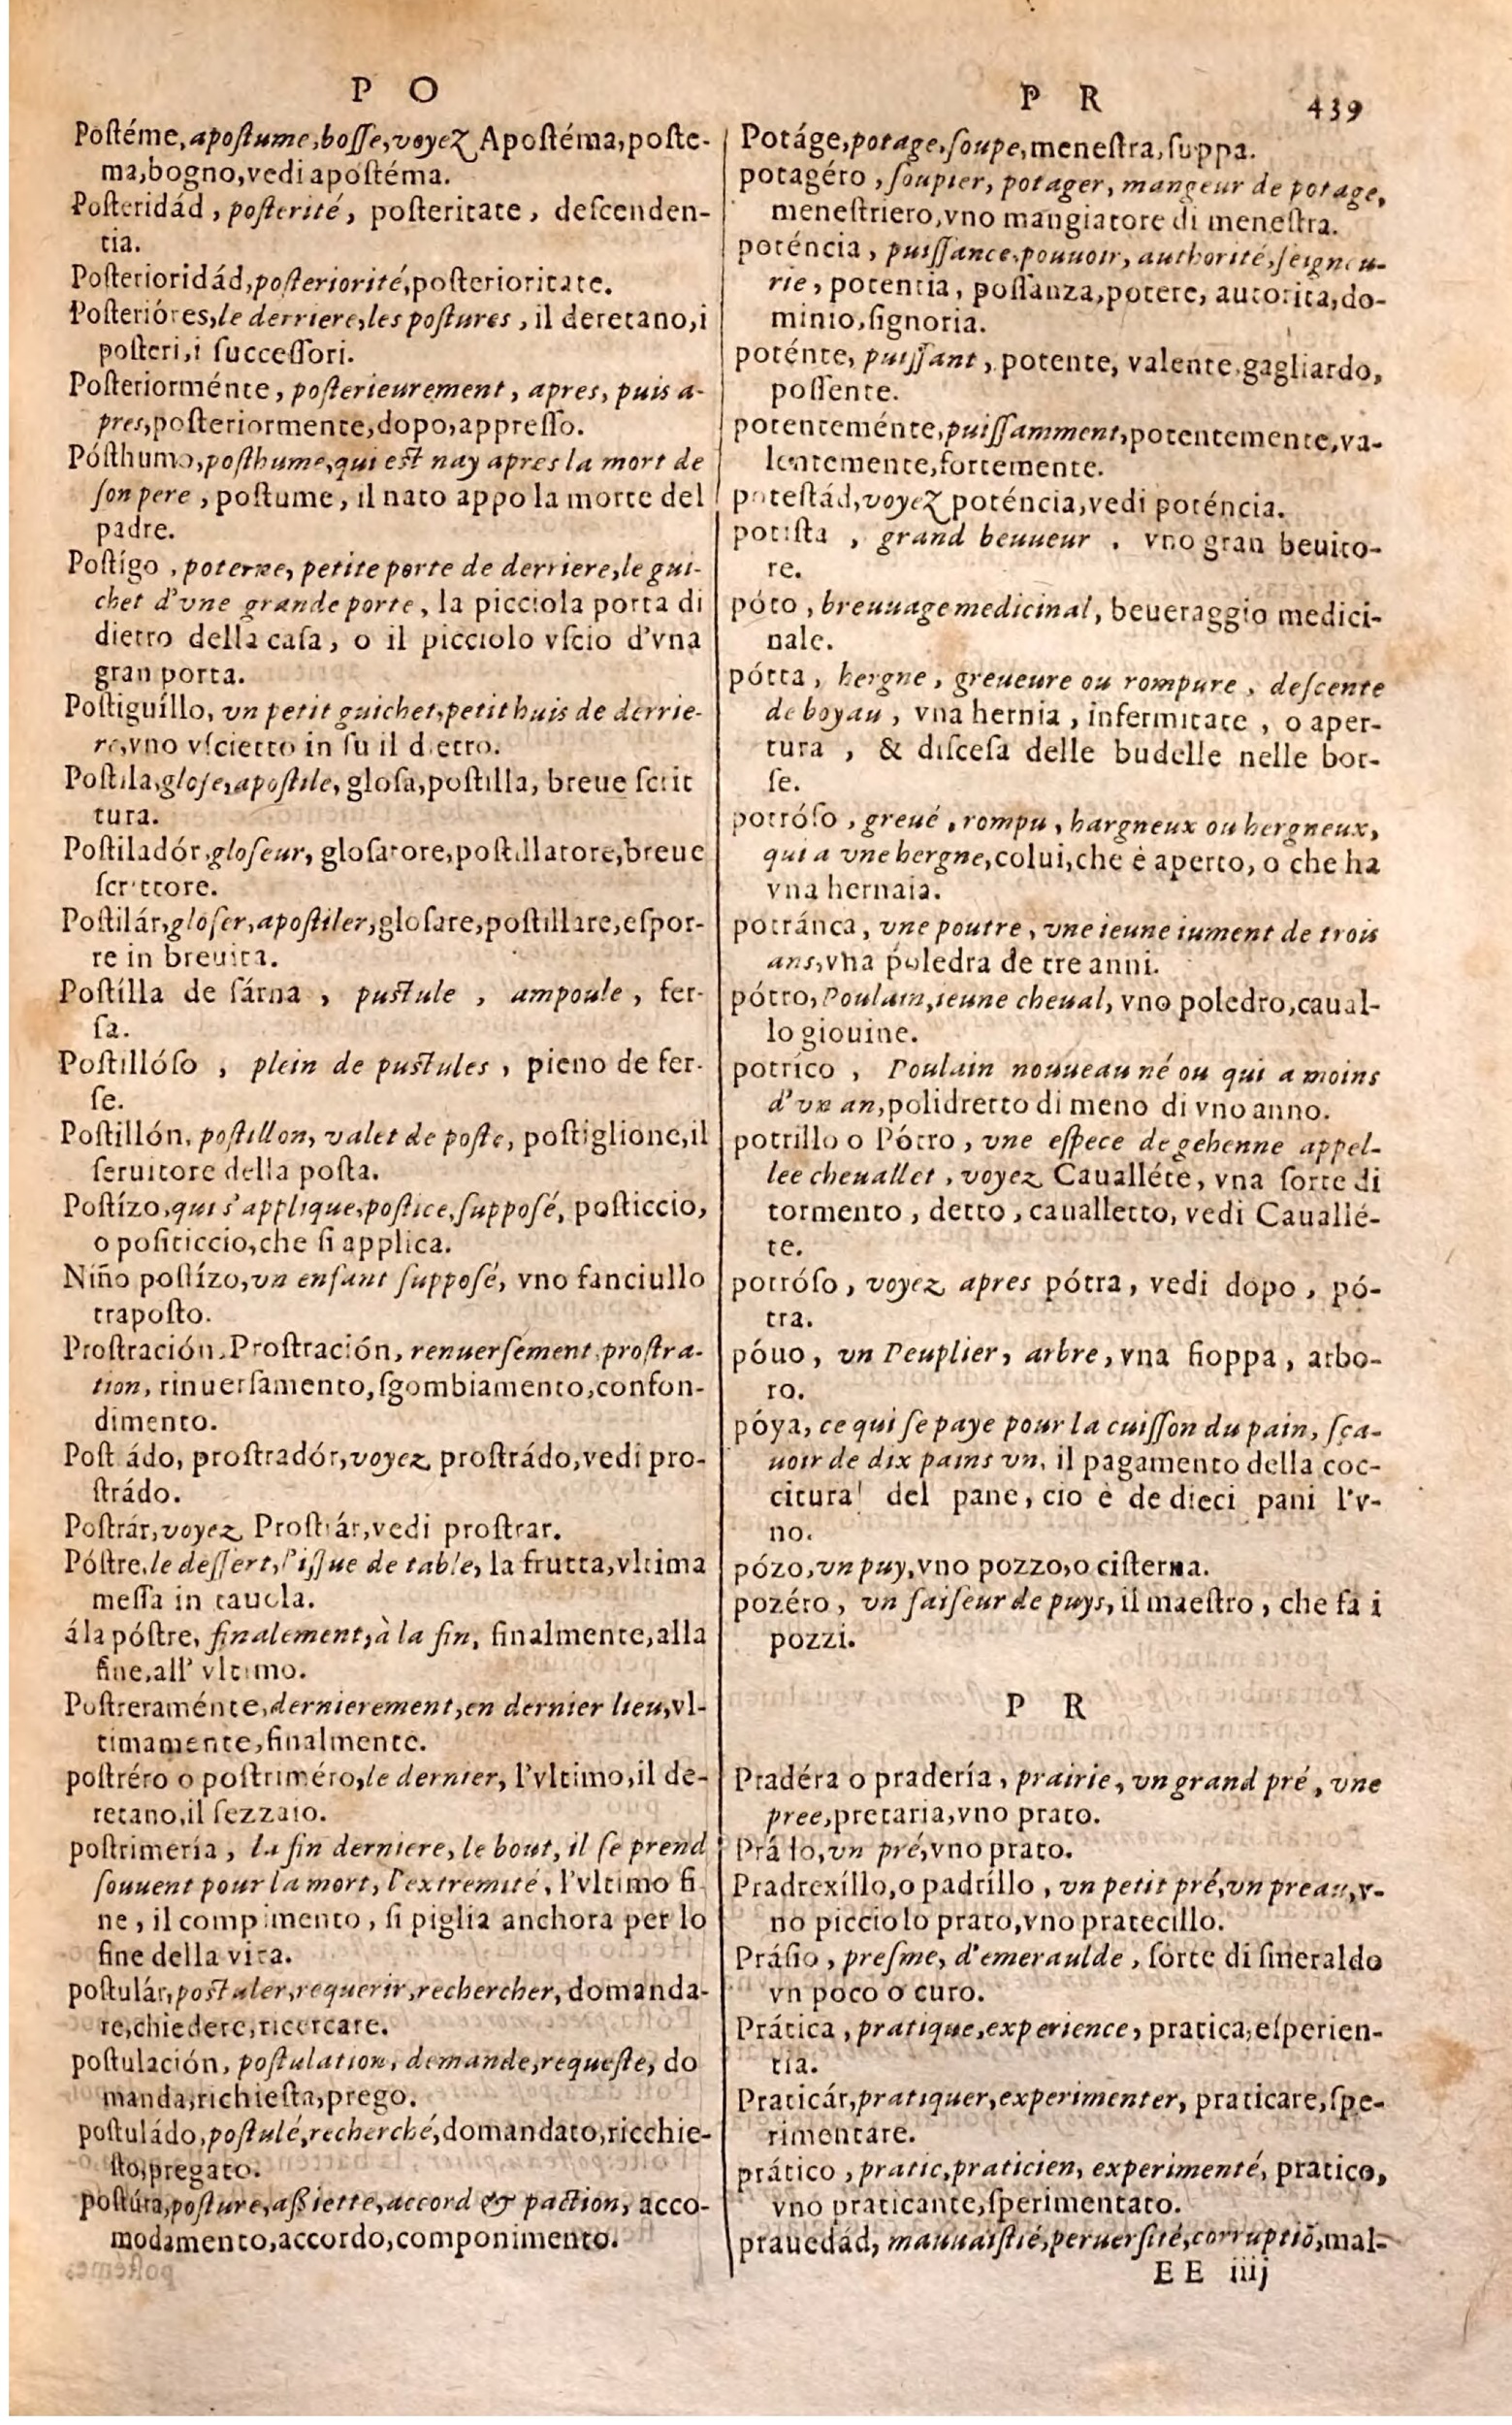 P O
Postéme, apostume, bosse, voyez Apostéma, poste-
ma, bogno, vedi apostéma.
Posteridád, posterité, posteritate, descenden-
tia.
Posterioridád, posteriorité, posterioritate.
Posterióres, le derriere, les postures, il deretano, i
posteri, i successori.
Posteriorménte, posterieurement, apres, puis a-
pres, posteriormente, dopo, appresso.
Pósthumo, posthume, qui est nay apres la mort de
son pere, postume, il nato appo la morte del
padre.
Postígo, poterne, petite porte de derriere, le gui-
chet d'vne grande porte, la picciola porta di
dietro della casa, o il picciolo vscio d'vna
gran porta.
Postiguíllo, vn petit guichet, petit huis de derrie-
re, vno vscietto in su il dietro.
Postila, glose, apostile, glosa, postilla, breue scrit
tura.
Postiladór, gloseur, glosatore, postillatore, breue
scrittore.
Postilár, gloser, apostiler, glosare, postillare, espor-
re in breuita.
Postílla de sárna, pustule, ampoule, fer-
sa.
Postillóso, plein de pustules, pieno de fer-
se.
Postillón, postillon, valet de poste, postiglione, il
seruitore della posta.
Postízo, qui s'applique, postice, supposé, posticcio,
o positiccio, che si applica.
Niño postízo, vn enfant supposé, vno fanciullo
traposto.
Prostración, Prostración, renuersement, prostra-
tion, rinuersamento, sgombiamento, confon-
dimento.
Post ádo, prostradór, voyez prostrádo, vedi pro-
strádo.
Postrár, voyez Prostrár, vedi prostrar.
Póstre, le dessert, l'issue de table, la frutta, vltima
messa in tauola.
á la póstre, finalement, à la fin, finalmente, alla
fine, all' vltimo.
Postreraménte, dernierement, en dernier lieu, vl-
timamente, finalmente.
postréro o postriméro, le dernier, l'vltimo, il de-
retano, il sezzaio.
postrimería, la fin derniere, le bout, il se prend
souuent pour la mort, l'extremité, l'vltimo fi
ne, il compimento, si piglia anchora per lo
fine della vita.
postulár, postuler, requerir, rechercher, domanda-
re, chiedere, ricercare.
postulación, postulation, demande, requeste, do
manda, richiesta, prego.
postuládo, postulé, recherché, domandato, ricchie-
sto, pregato.
postúra, posture, assiette, accord & paction, acco-
modamento, accordo, componimento.
P R 439
Potáge, potage, soupe, menestra, suppa.
potagéro, soupier, potager, mangeur de potage,
menestriero, vno mangiatore di menestra.
poténcia, puissance, pouuoir, authorité, seigneu-
rie, potentia, possanza, potere, autorita, do-
minio, signoria.
poténte, puissant, potente, valente, gagliardo,
possente.
potenteménte, puissamment, potentemente, va-
lentemente, fortemente.
potestád, voyez poténcia, vedi poténcia.
potista, grand beuueur, vno gran beuito-
re.
póto, breuuage medicinal, beueraggio medici-
nale.
pótra, hergne, greueure ou rompure, descente
de boyau, vna hernia, infermitate, o aper-
tura, & discesa delle budelle nelle bor-
se.
potróso, greué, rompu, hargneux ou hergneux,
qui a vne hergne, colui, che è aperto, o che ha
vna hernaia.
potránca, vne poutre, vne ieune iument de trois
ans, vna poledra de tre anni.
pótro, Poulain, ieune cheual, vno poledro, caual-
lo giouine.
potríco, Poulain nouueau né ou qui a moins
d'vn an, polidretto di meno di vno anno.
potrillo o Pótro, vne espece de gehenne appel-
lee cheuallet, voyez Cauálléte, vna sorte di
tormento, detto, caualletto, vedi Cauallé-
te.
potróso, voyez apres pótra, vedi dopo, pó-
tra.
póuo, vn Peuplier, arbre, vna fioppa, arbo-
ro.
póya, ce qui se paye pour la cuisson du pain, sça-
uoir de dix pains vn, il pagamento della coc-
citura del pane, cio è de dieci pani l'v-
no.
pózo, vn puy, vno pozzo, o cisterna.
pozéro, vn faiseur de puys, il maestro, che fa i
pozzi.
P R
Pradéra o pradería, prairie, vn grand pré, vne
pree, pretaria, vno prato.
Prádo, vn pré, vno prato.
Pradrexíllo, o padríllo, vn petit pré, vn preau, v-
no picciolo prato, vno pratecillo.
Prásio, presme, d'emeraulde, sorte di smeraldo
vn poco o curo.
Prática, pratique, experience, pratica, esperien-
tia.
Praticár, pratiquer, experimenter, praticare, spe-
rimentare.
prático, pratic, praticien, experimenté, pratico,
vno praticante, sperimentato.
prauedád, mauuaistié, peruersité, corruptiõ, mal-
EE iiij